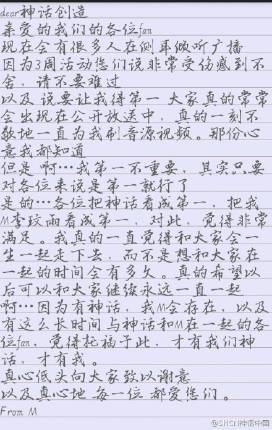 dear神话创造
亲爱的我们的各位fan
现在会有很多人在侧耳倾听广播
因为3周活动您们说非常受伤感到不
舍，请不要难过
以及说要让我得第一 大家真的常常
会出现在公开放送中，真的一刻不
歇地一直为我刷音源视频。那份心
意我都知道
但是 啊…我第一不重要，其实只要
对各位来说是第一就行了
是的…各位把神话看成第一，把我
M李玟雨看成第一，对此，觉得非常
满足。我真的一直觉得和大家会一
生一起走下去，而不是想和大家在
一起的时间会有多久。真的希望以
后可以和大家继续永远一直一起
啊…因为有神话，我M会存在，以及
有这么长时间与神话和M在一起的各
位fan，觉得托福于此，才有我们神
话，才有我。
真心低头向大家致以谢意
以及真心地 每一位 都爱您们。
From M
@SHCN神信中网